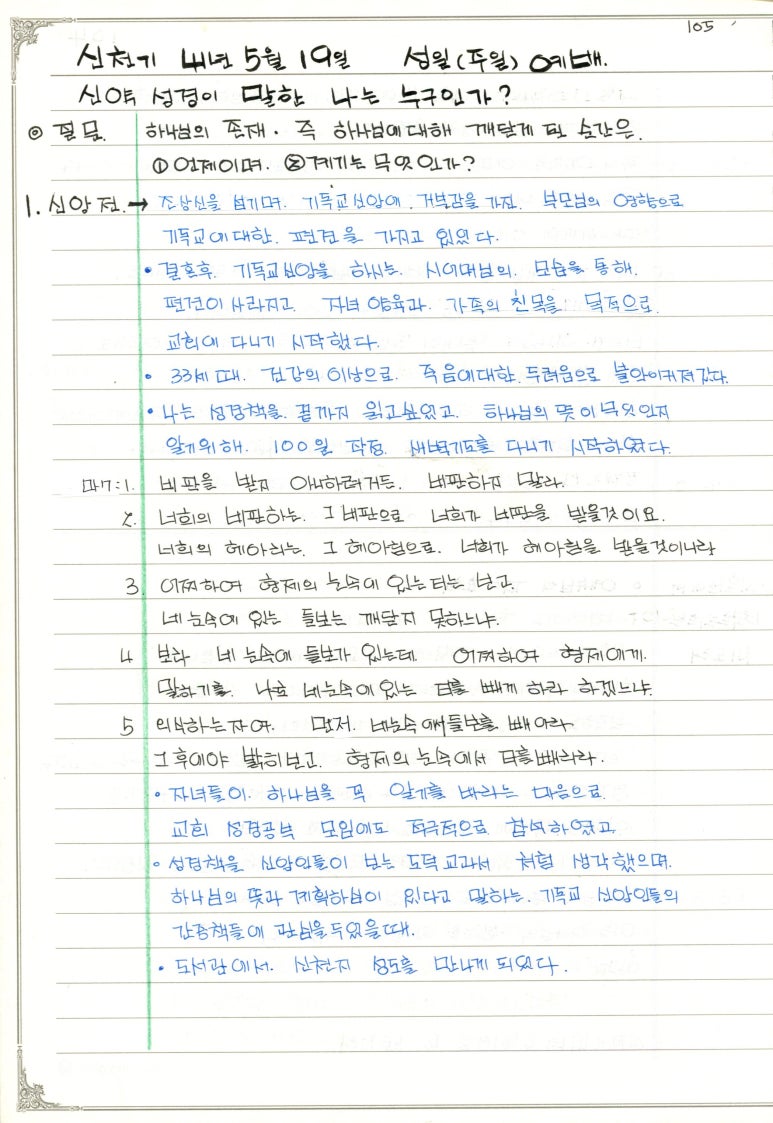 105
신천기 41년 5월 19일 성일(주일) 예배.
신약 성경이 말한 나는 누구인가?
◎ 질문. 하나님의 존재. 즉 하나님에 대해 깨닫게 된 순간은.
① 언제이며. ② 계기는 무엇인가?
1. 신앙 전. → 조상신을 섬기며. 기독교 신앙에. 거부감을 가진. 부모님의 영향으로
기독교에 대한. 편견을 가지고 있었다.
• 결혼후. 기독교신앙을 하시는. 시어머님의. 모습을 통해.
편견이 사라지고. 자녀 양육과. 가족의 친목을 목적으로.
교회에 다니기 시작했다.
• 33세 때. 건강의 이상으로. 죽음에대한. 두려움으로 불안이커져갔다.
• 나는 성경책을. 끝까지 읽고싶었고. 하나님의 뜻이 무엇인지
알기위해. 100일 작정. 새벽기도를 다니기 시작하였다.
마7:1. 비판을 받지 아니하려거든. 비판하지 말라.
2. 너희의 비판하는. 그 비판으로 너희가 비판을 받을것이요.
너희의 헤아리는. 그 헤아림으로. 너희가 헤아림을 받을것이니라
3. 어찌하여 형제의 눈속에 있는 티는 보고
네 눈속에 있는 들보는 깨닫지 못하느냐.
4 보라 네 눈속에 들보가 있는데 어찌하여 형제에게.
말하기를. 나로 네눈속에 있는 티를 빼게 하라 하겠느냐.
5 외식하는자여. 먼저. 네눈속에서들보를 빼어라
그후에야 밝히보고. 형제의 눈속에서 티를빼리라.
• 자녀들이. 하나님을 꼭 알기를 바라는 마음으로
교회 성경공부 모임에도 적극적으로 참석하였고
• 성경책을 신앙인들이 보는 도덕교과서 처럼 생각했으며.
하나님의 뜻과 계획하심이 있다고 말하는. 기독교 신앙인들의
간증책들에 관심을 두었을때.
• 도서관에서. 신천지 성도를 만나게 되었다.